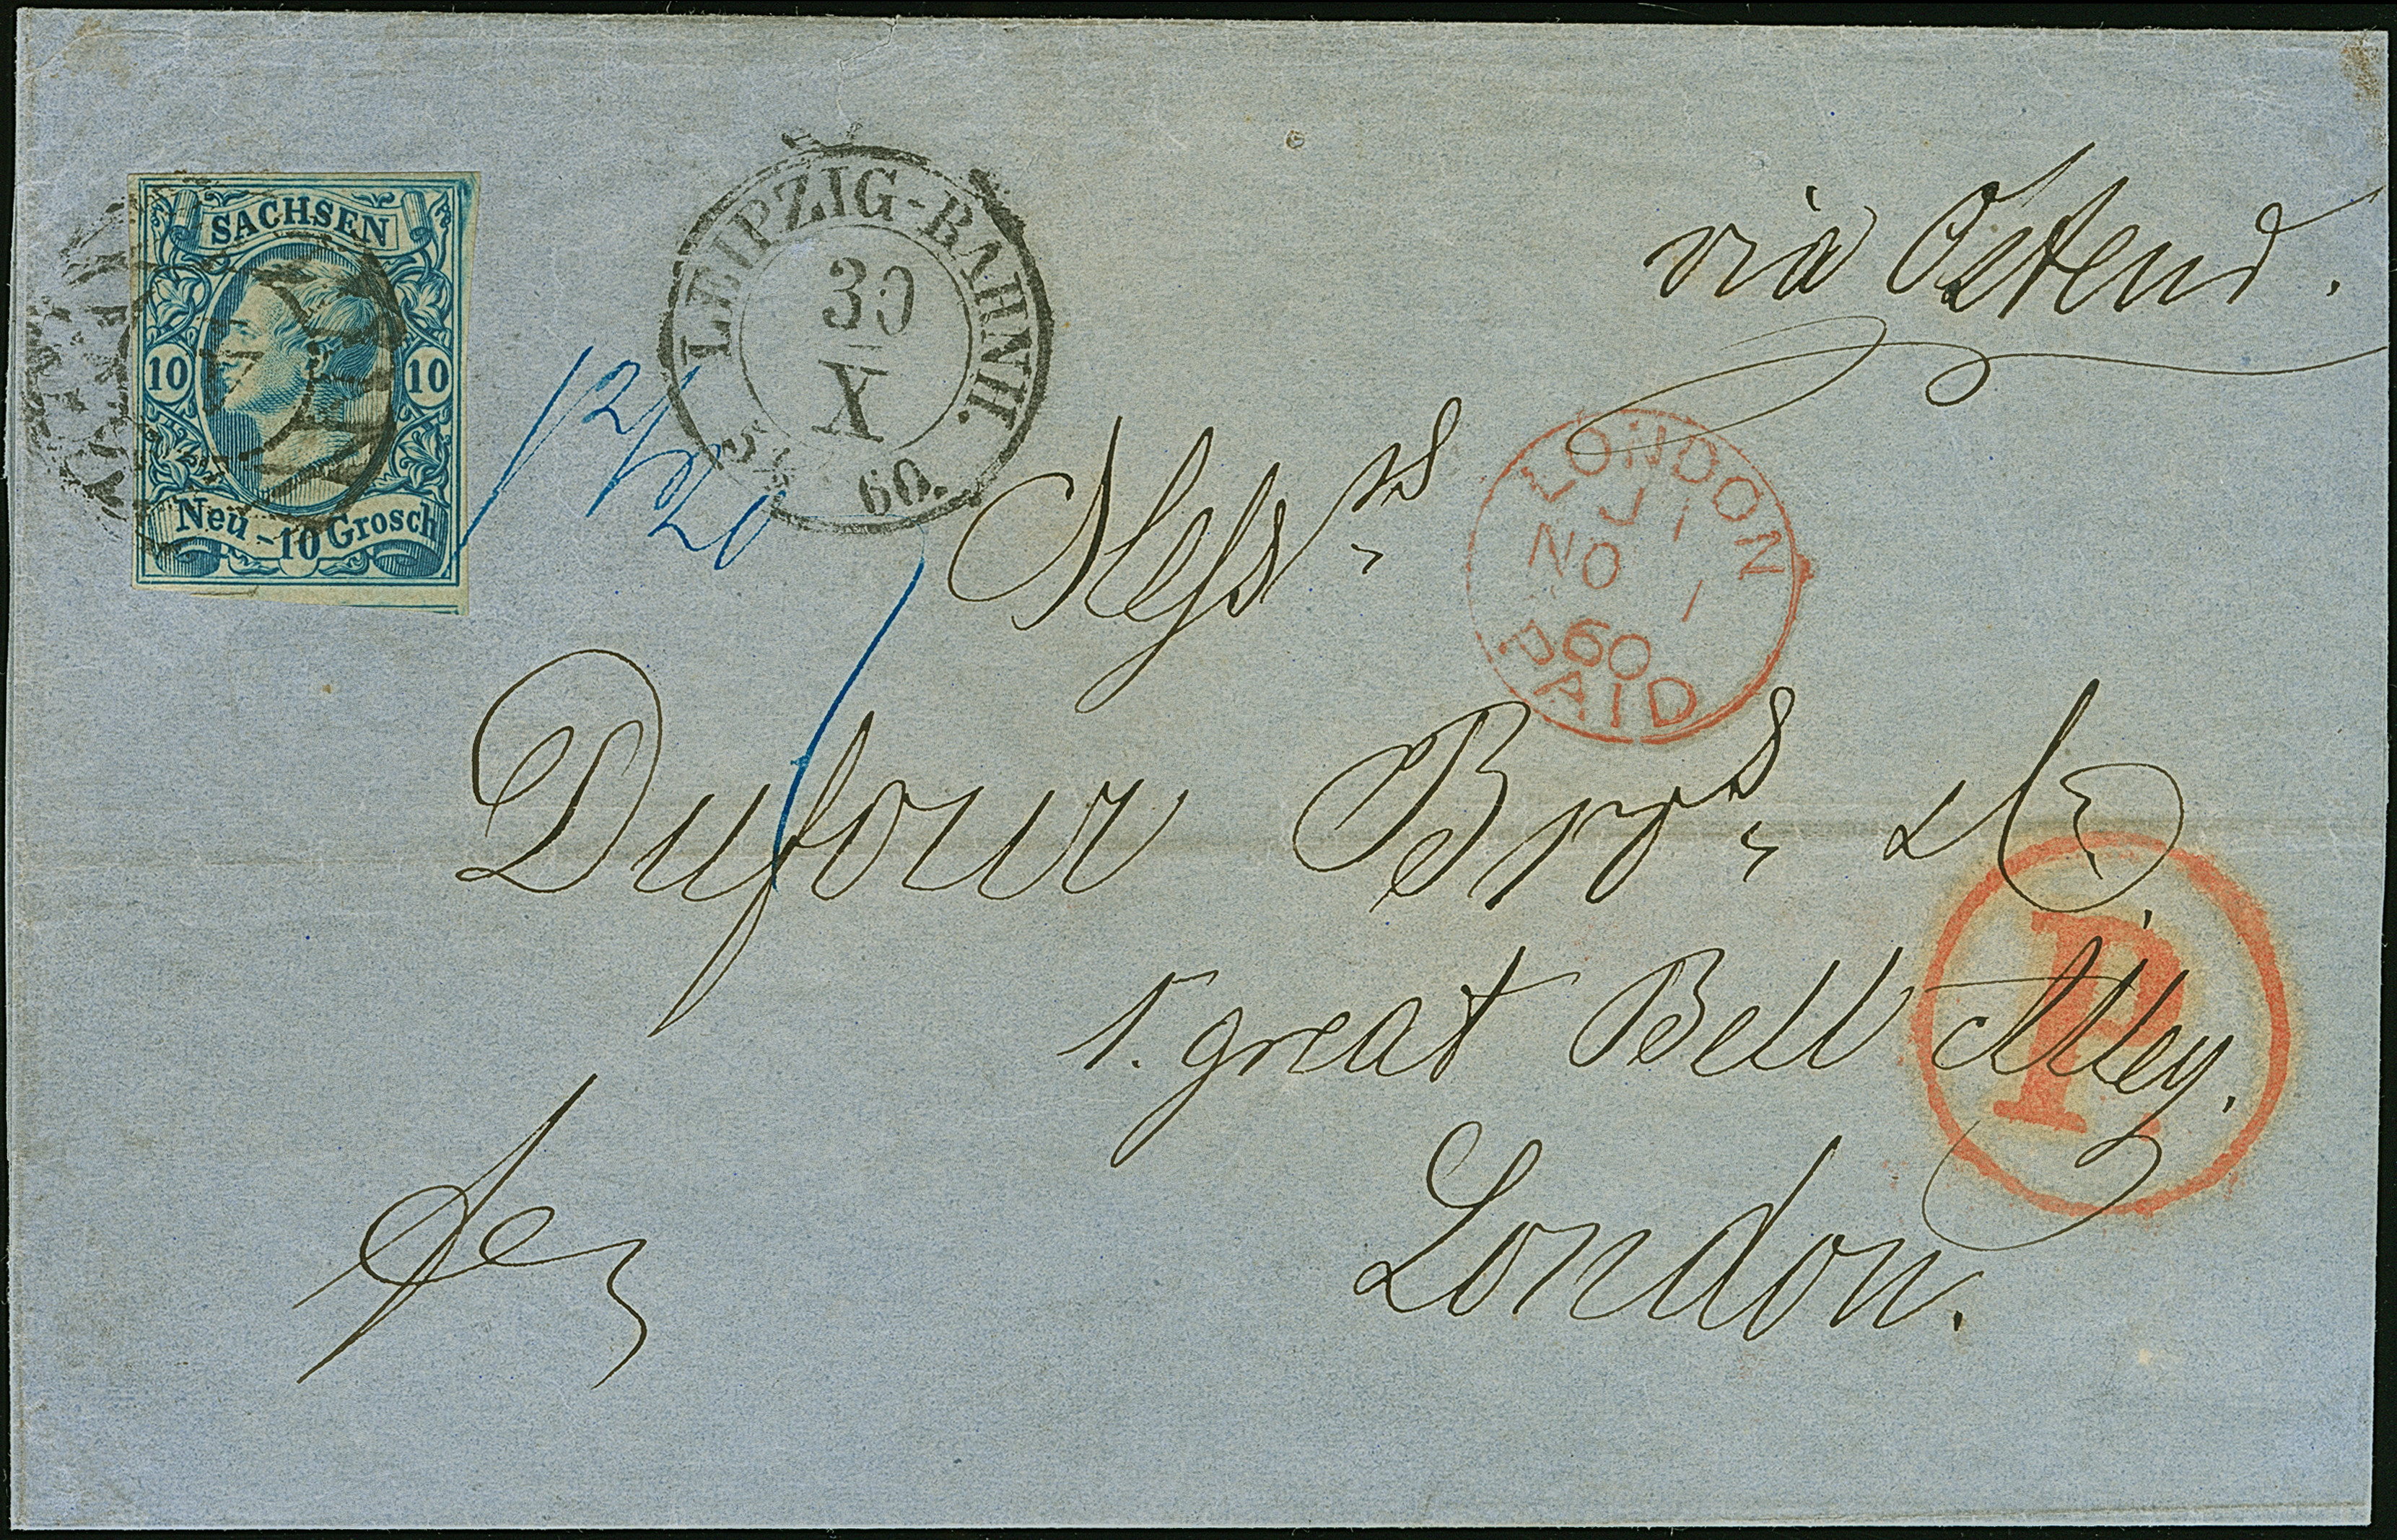 SACHSEN
10 10
Neu-10 Grosch
LEIPZIG-BAHNH.
30
X
60.
via Ostend.
LONDON
NO 1
60
PAID
Messrs
Dufour Bros &
1. great Bell Alley.
London.
P.